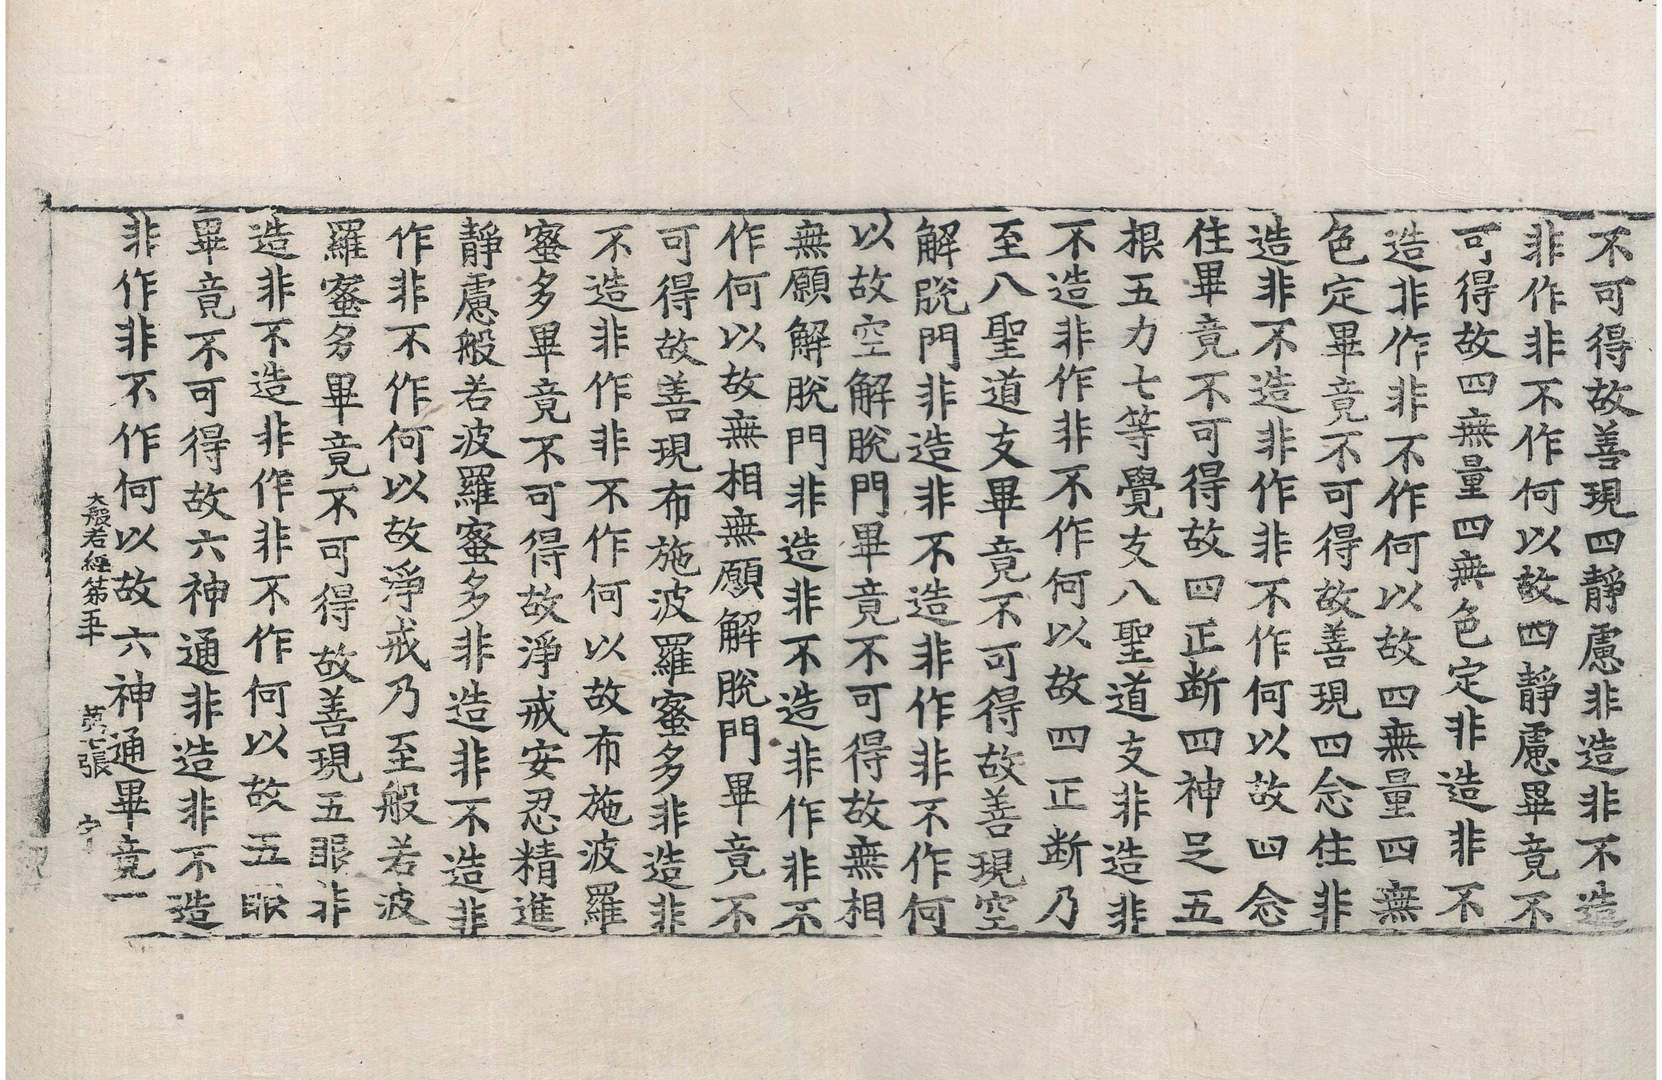 不可得故善現四靜慮非造非不造
非作非不作何以故四靜慮畢竟不
可得故四無量四無色定非造非不
造非作非不作何以故四無量四無
色定畢竟不可得故善現四念住非
造非不造非作非不作何以故四念
住畢竟不可得故四正断四神足五
根五力七等覺支八聖道支非造非
不造非作非不作何以故四正断乃
至八聖道支畢竟不可得故善現空
解脫門非造非不造非作非不作何
以故空解脫門畢竟不可得故無相
無願解脫門非造非不造非作非不
作何以故無相無願解脫門畢竟不
可得故善現布施波羅蜜多非造非
不造非作非不作何以故布施波羅
蜜多畢竟不可得故淨戒安忍精進
靜慮般若波羅蜜多非造非不造非
作非不作何以故淨戒乃至般若波
羅蜜多畢竟不可得故善現五眼非
造非不造非作非不作何以故五眼
畢竟不可得故六神通非造非不造
非作非不作何以故六神通畢竟
大般若經第五十 張